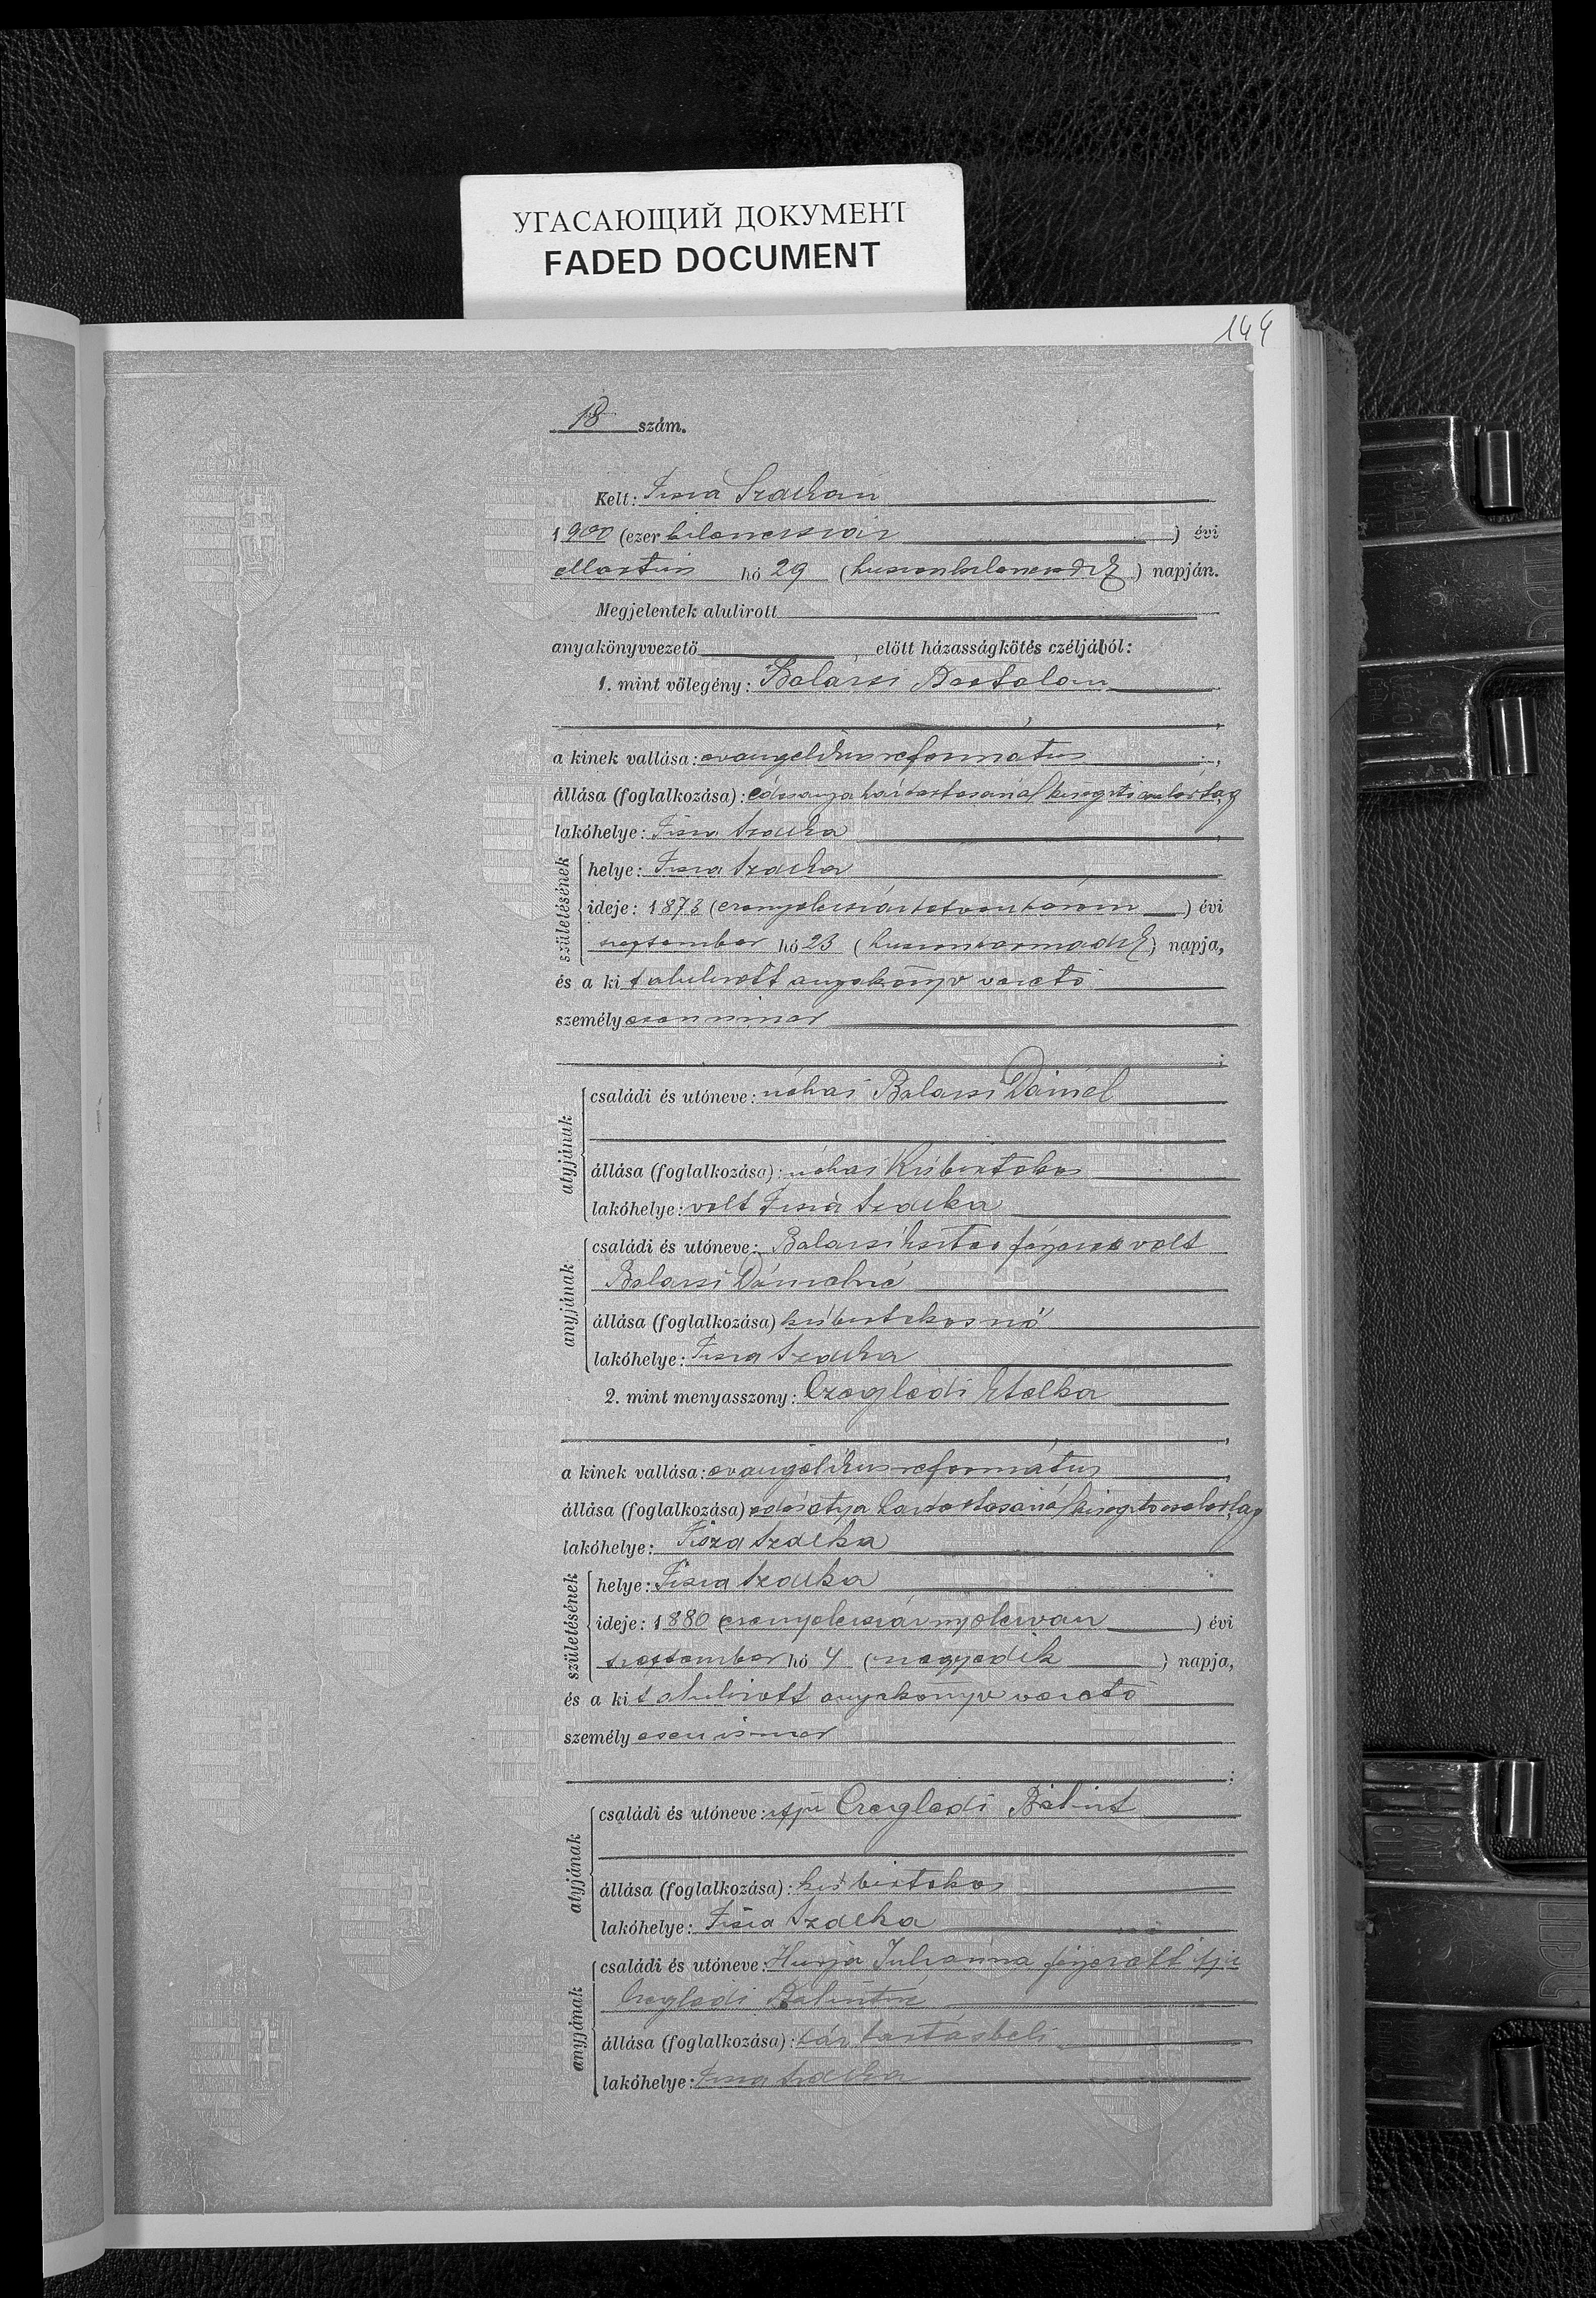 УГАСАЮЩИЙ ДОКУМЕНТ
FADED DOCUMENT
144
18 szám.
Kelt: Tisza Szalkán
1900 (ezer kilenczszáz) évi
Martius hó 29 (huszonkilenczedik) napján.
Megjelentek alulirott
anyakönyvvezető előtt házasságkötés czéljából:
1. mint vőlegény: Balázsi Bertalan
,
a kinek vallása: evangelikus reformatus ,
állása (foglalkozása): édesanya háztartásának kisegítő családtag
lakóhelye: Tisza Szalka ,
születésének
helye: Tisza Szalka
ideje: 1873 (ezernyolczszázhetvenhárom) évi
szeptember hó 23 (huszonharmadik) napja,
és a kit alulirott anyakönyv vezető
személyesen ismer
;
atyjának
családi és utóneve: néhai Balázsi Dániel
állása (foglalkozása): néhai Kisbirtokos
lakóhelye: volt Tisza Szalka
anyjának
családi és utóneve: Balázsi Eszter férjezett volt
Balázsi Dánielné
állása (foglalkozása) kisbirtokosnő
lakóhelye: Tisza Szalka
2. mint menyasszony: Czeglédi Etelka
,
a kinek vallása: evangélikus református ,
állása (foglalkozása) édes atya háztartásának kisegítő családtag
lakóhelye: Tisza Szalka
születésének
helye: Tisza Szalka
ideje: 1880 (ezernyolczszáznyolczvan) évi
szeptember hó 4 (negyedik) napja,
és a kit alulirott anyakönyv vezető
személyesen ismer
;
atyjának
családi és utóneve: ifjú Czeglédi Bálint
állása (foglalkozása): kis birtokos
lakóhelye: Tisza Szalka
anyjának
családi és utóneve: Julianna férjezett ifjú
Czeglédi Bálintné
állása (foglalkozása): háztartásbeli
lakóhelye: Tisza Szalka